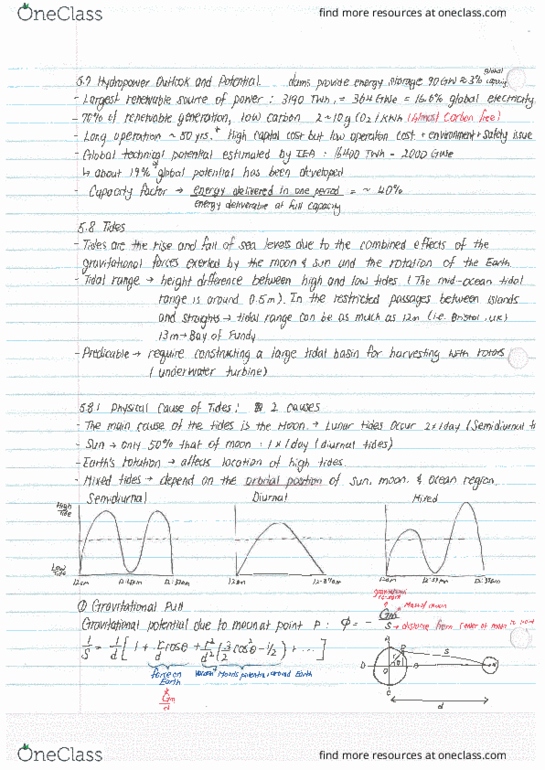 OneClass
find more resources at oneclass.com
5.7 Hydropower Outlook and Potential. dams provide energy storage 90 GW ≈ 3% global capacity
- Largest renewable source of power : 3190 TWh, = 364 GWe = 16.6% global electricity
- 78% of renewable generation, low carbon 2~10g CO2 / KWh (Almost Carbon free)
- Long operation ~ 50 yrs. + High capital cost but low operation cost + environment + safety issue
- Global technical potential estimated by IEA : 16400 TWh = 2000 GWe
↳ about 19% of global potential has been developed
- Capacity factor → energy delivered in one period = ~ 40%
energy deliverable at full capacity
5.8 Tides
- Tides are the rise and fall of sea levels due to the combined effects of the
gravitational forces exerted by the moon & sun and the rotation of the Earth
- Tidal range → height difference between high and low tides (The mid-ocean tidal
range is around 0.5m). In the restricted passages between islands
and straights → tidal range can be as much as 12m (i.e. Bristol, UK)
13m → Bay of Fundy
- Predicable → require constructing a large tidal basin for harvesting with rotors
(underwater turbine)
5.8.1 Physical Cause of Tides: 2 causes
- The main cause of the tides is the Moon. → Lunar tides occur 2x1day (Semidiurnal
- Sun → only 50% that of moon : 1x1day (diurnal tides)
- Earth's rotation → affects location of high tides.
- Mixed tides → depend on the orbital position of Sun, moon, & Ocean region.
Semidiurnal Diurnal Mixed
High tide
Low tide
① Gravitational Pull
Gravitational potential due to moon at point P : Φ = - Gm/s
Mass of moon
→ distance from center of moon to point
1/s = 1/d [ 1 + r/d cosθ + r²/d² (3/2 cos²θ - 1/2) + ... ]
force on Earth
Moon's potential around Earth
Gm
s
d
OneClass
find more resources at oneclass.com